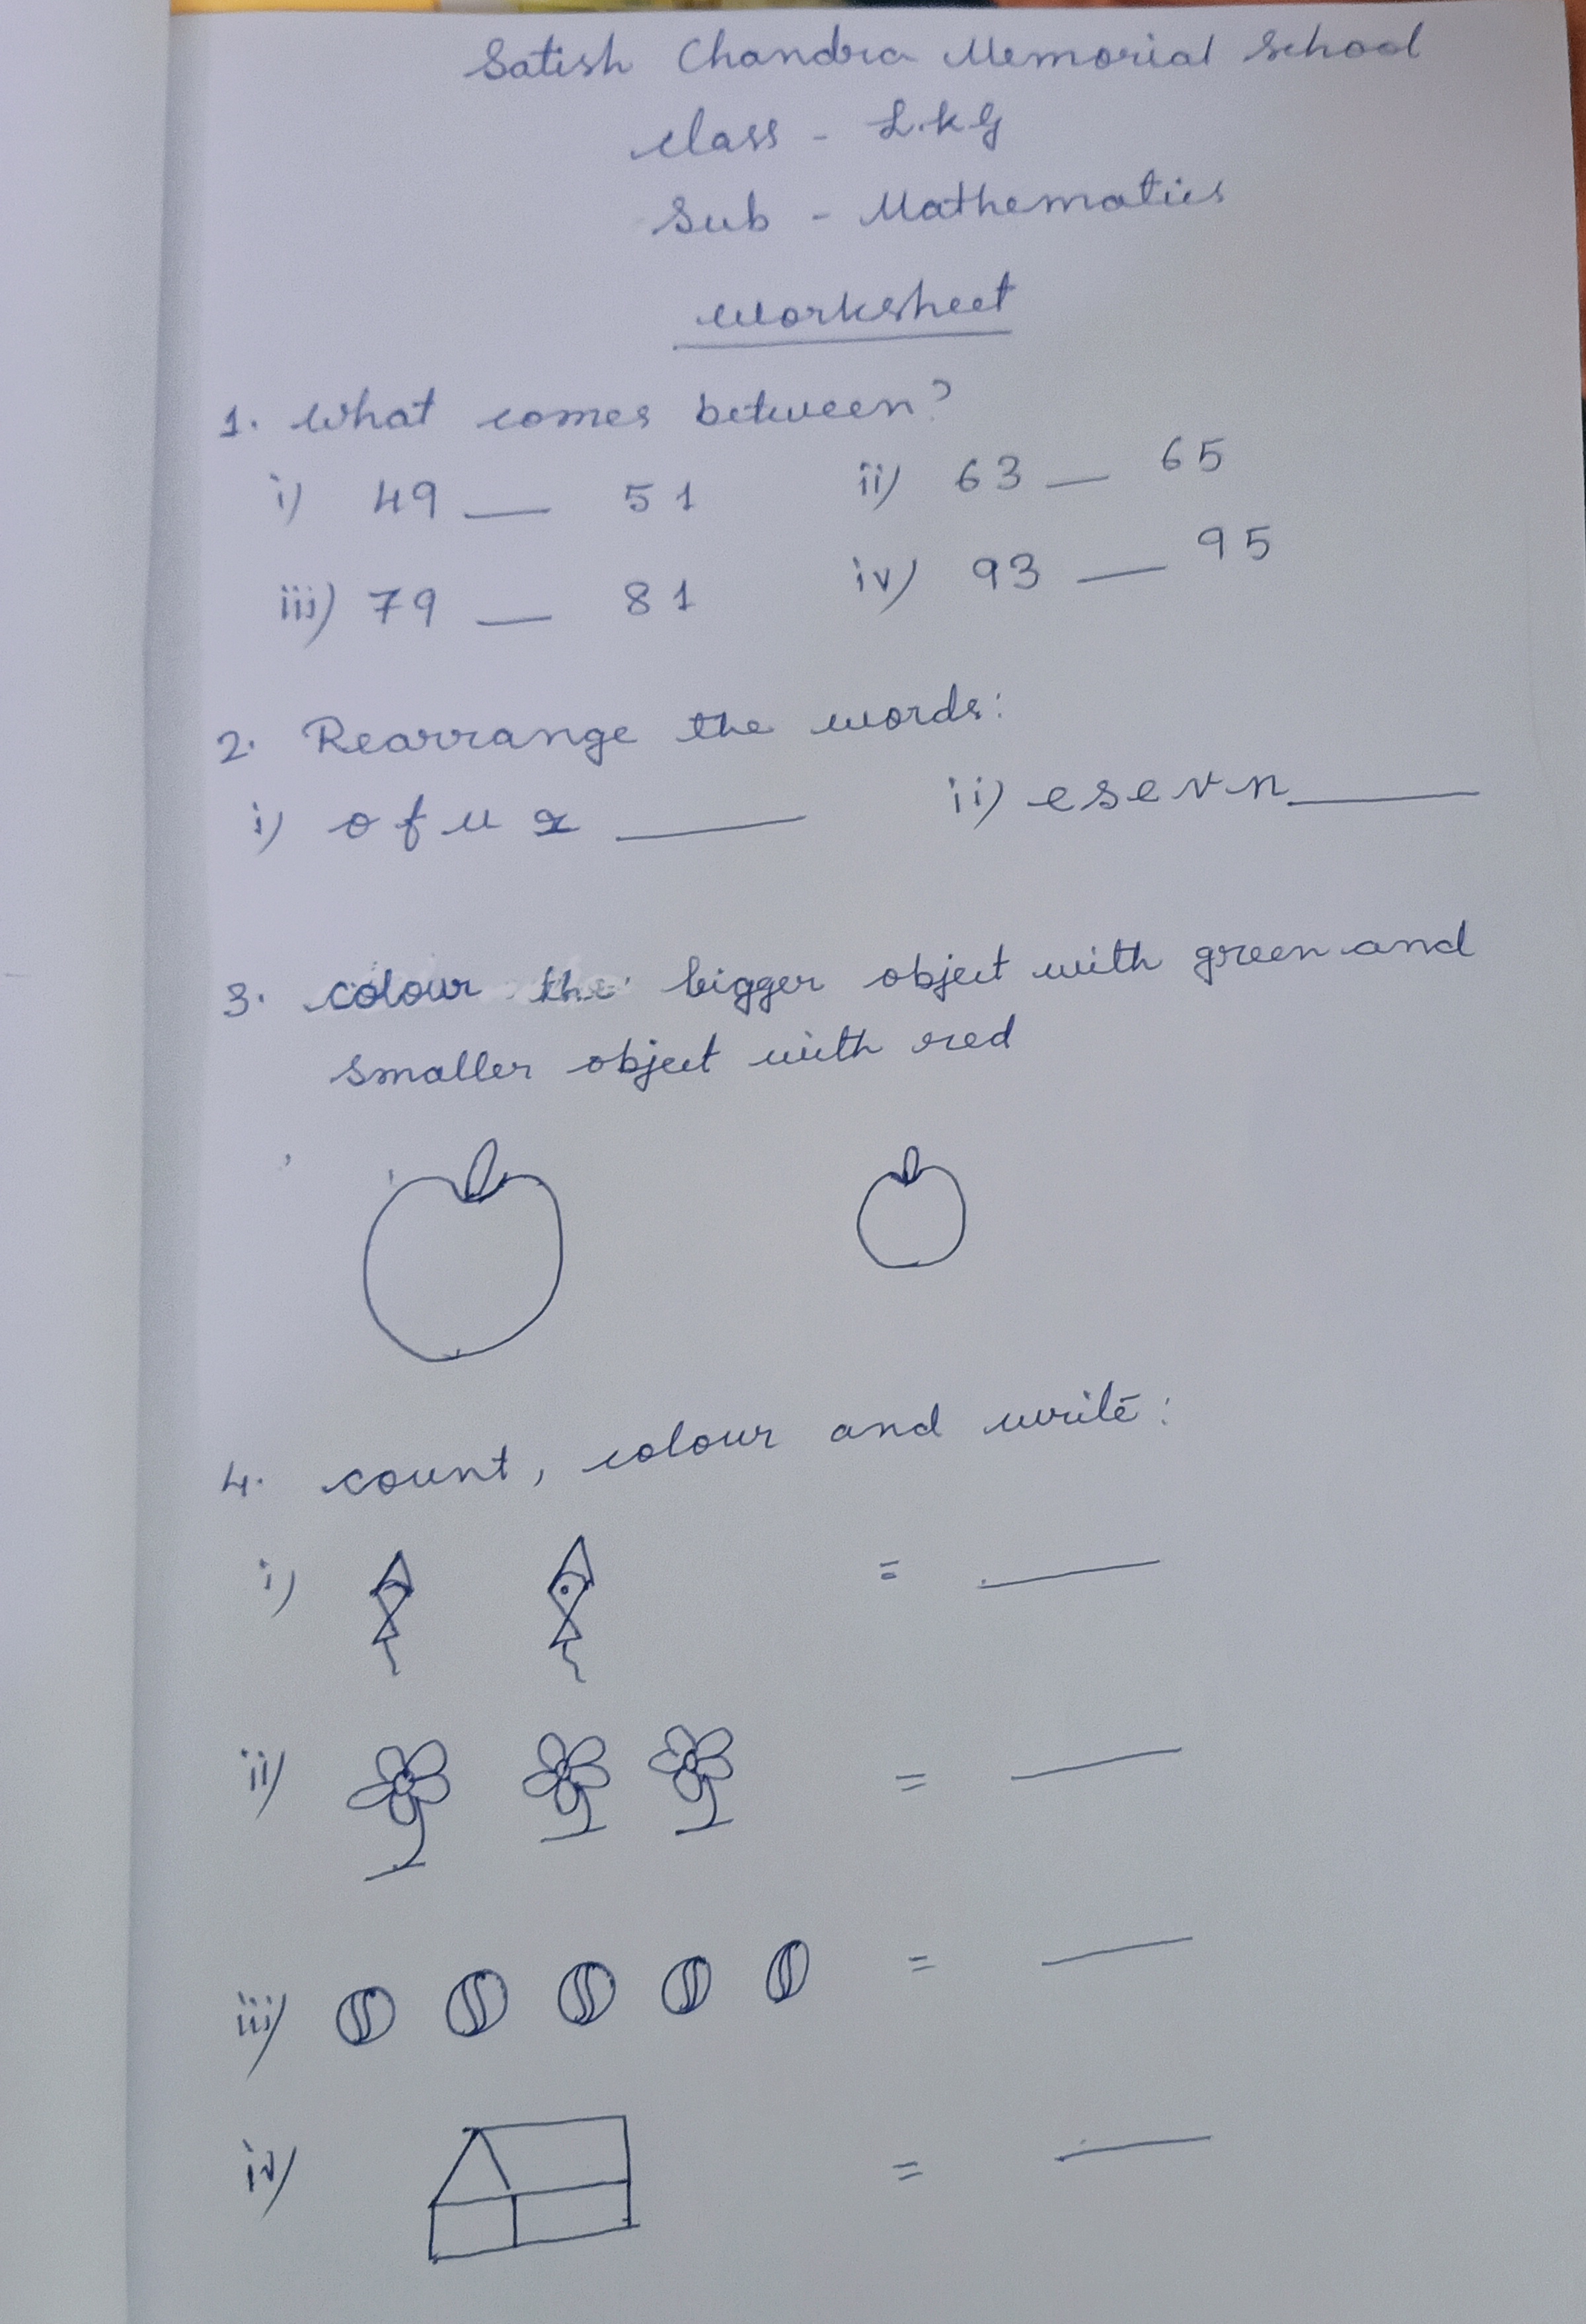 Satish Chandra Memorial School
Class - L.K.G
Sub - Mathematics
Worksheet
1. What comes between?
i) 49 __ 51 ii) 63 __ 65
iii) 79 __ 81 iv) 93 __ 95
2. Rearrange the words:
i) o f u r ____ ii) e s e v n ____
3. colour the bigger object with green and
smaller object with red
4. count, colour and write:
i) = ____
ii) = ____
iii) = ____
iv) = ____